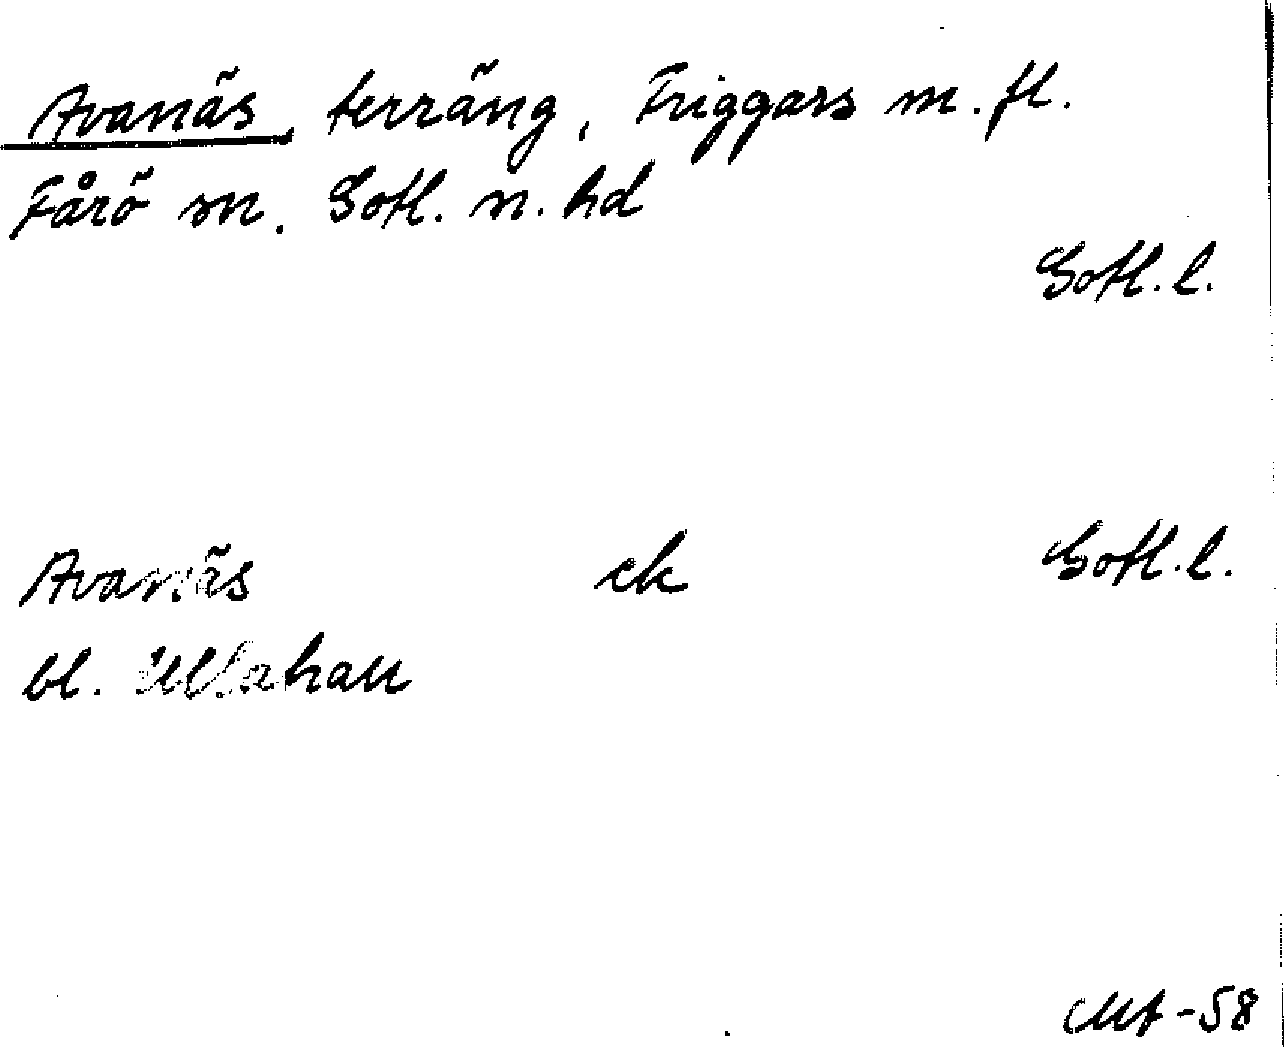 Avanäs, terräng, Friggars m.fl.
Fårö sn. Gotl. n. hd
Gotl. l.
Avanäs ek Gotl. l.
bl. Ullahau
-58